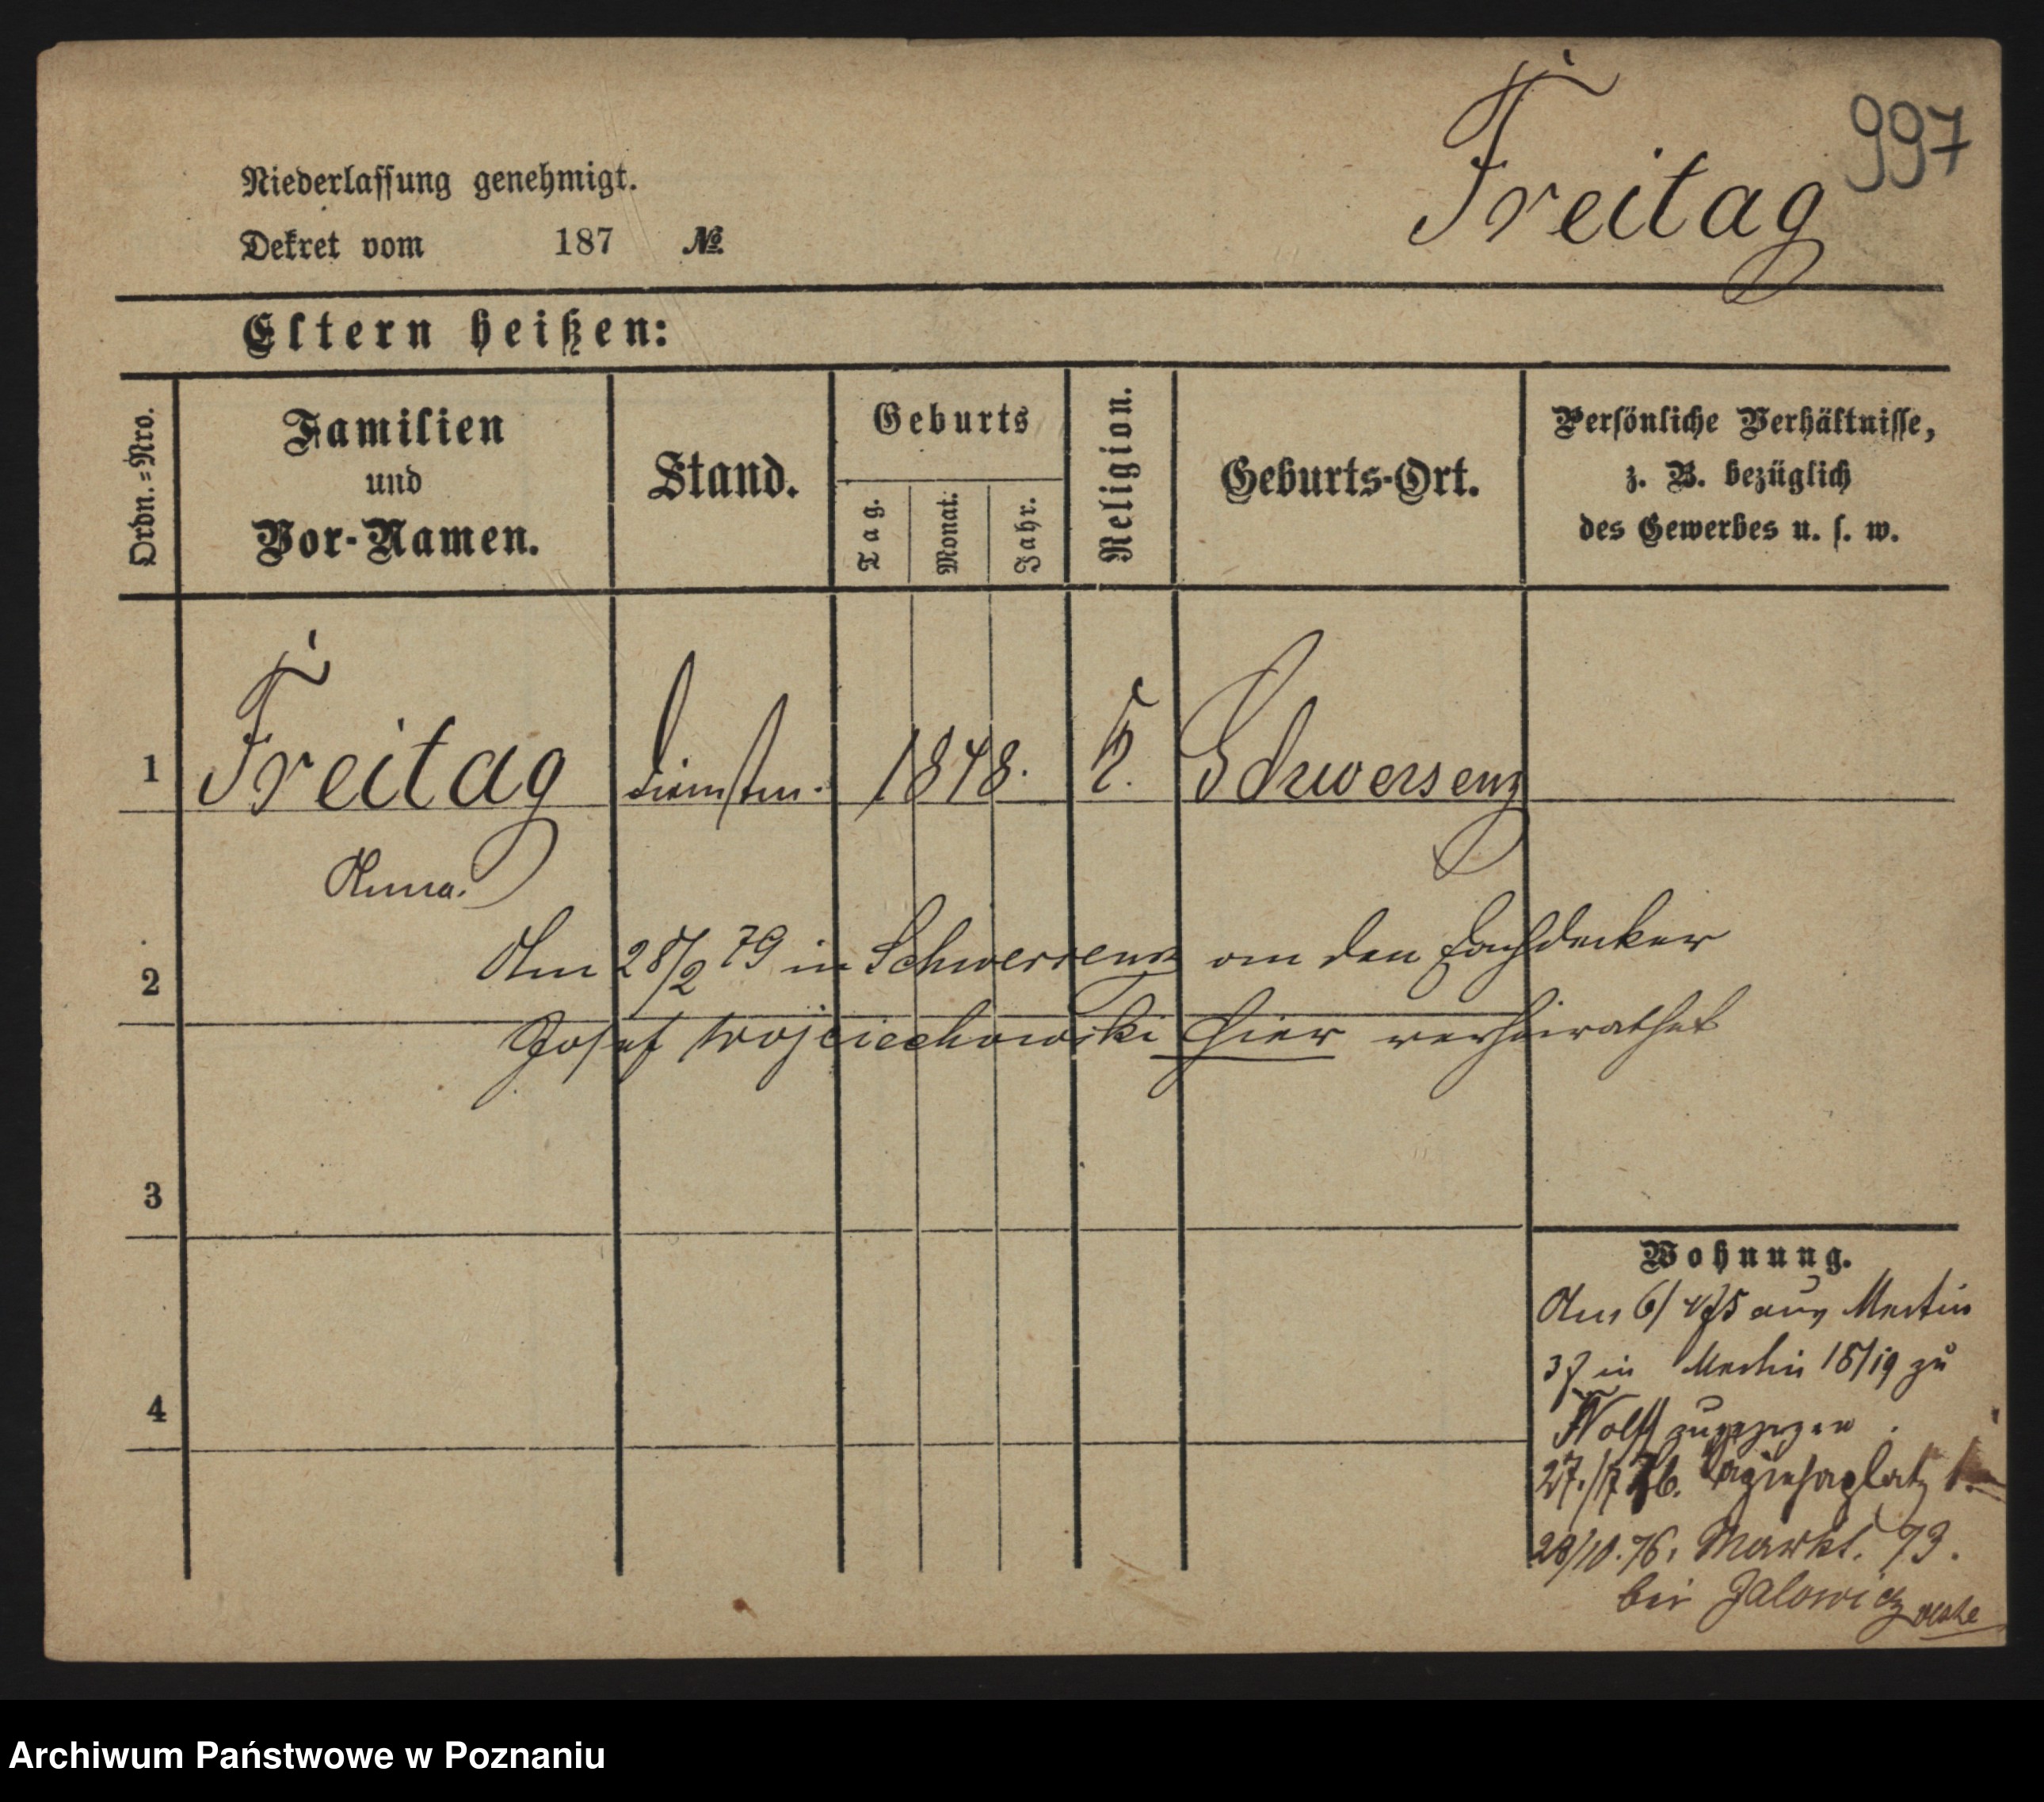 997
Freitag
Niederlassung genehmigt.
Dekret vom 187 №
Eltern heißen:
Ordn.=Nro.
Familien
und
Vor-Namen.
Stand.
Geburts
Tag.
Monat.
Jahr.
Religion.
Geburts-Ort.
Persönliche Verhältnisse,
z. B. bezüglich
des Gewerbes u. s. w.
1 Freitag 1848. K. Schwersenz
Anna.
Am 28/2 79 in Schwersenz an den Dachdecker
2
Josef Wojciechowski hier verheirathet
3
Wohnung.
Am 6/ 75 aus Martin
37 in Martin 18/19 zu
4
Wolff zugezogen.
27./7 76. 1.
28/10. 76. Markt. 73.
bei Jalowicz
Archiwum Państwowe w Poznaniu